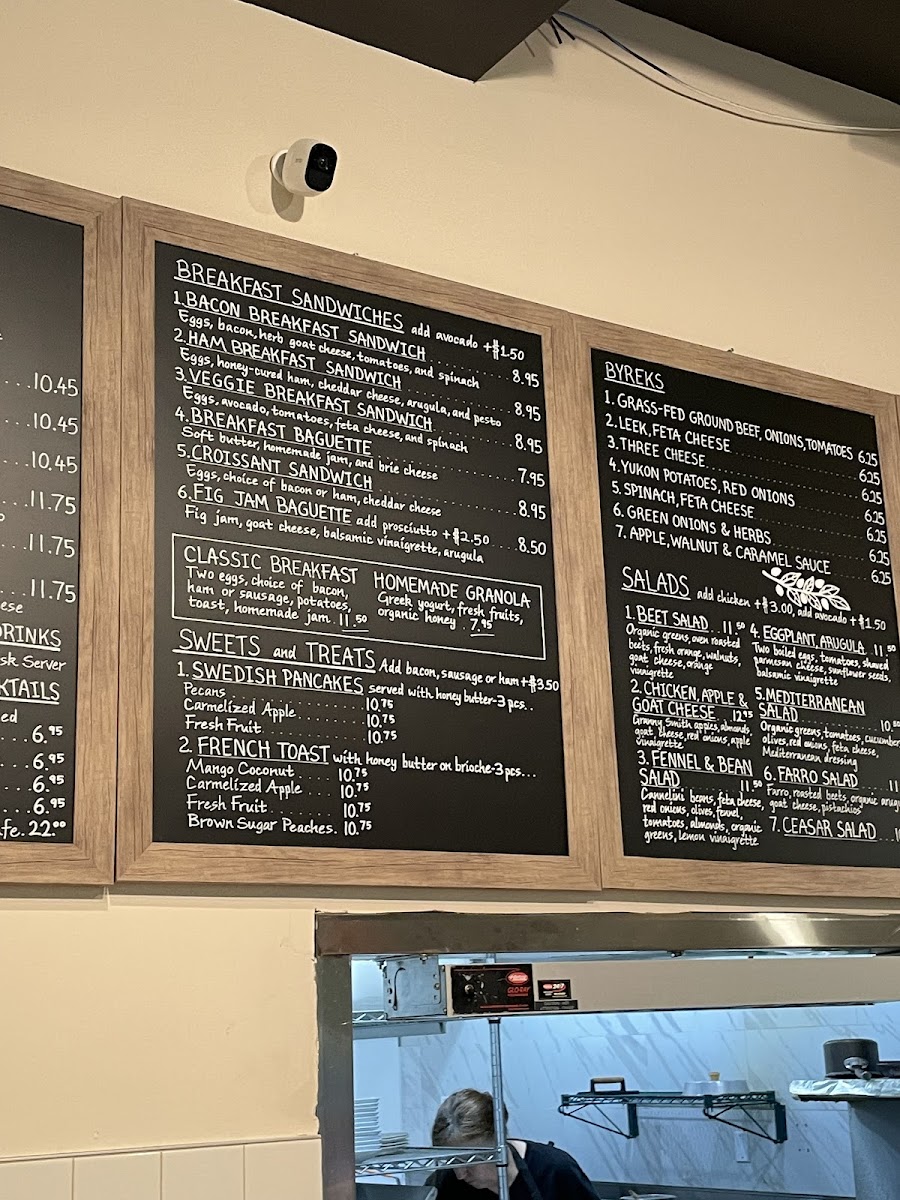 10.45
10.45
10.45
11.75
11.75
11.75
DRINKS
sk Server
KTAILS
6.95
6.95
6.95
6.95
fe. 22.00
BREAKFAST SANDWICHES add avocado +$1.50
1. BACON BREAKFAST SANDWICH 8.95
Eggs, bacon, herb goat cheese, tomatoes, and spinach
2. HAM BREAKFAST SANDWICH 8.95
Eggs, honey-cured ham, cheddar cheese, arugula, and pesto
3. VEGGIE BREAKFAST SANDWICH 8.95
Eggs, avocado, tomatoes, feta cheese, and spinach
4. BREAKFAST BAGUETTE 7.95
Soft butter, homemade jam, and brie cheese
5. CROISSANT SANDWICH 8.95
Eggs, choice of bacon or ham, cheddar cheese
6. FIG JAM BAGUETTE add prosciutto +$2.50 8.50
Fig jam, goat cheese, balsamic vinaigrette, arugula
CLASSIC BREAKFAST
Two eggs, choice of bacon,
ham or sausage, potatoes,
toast, homemade jam. 11.50
HOMEMADE GRANOLA
Greek yogurt, fresh fruits,
organic honey. 7.95
SWEETS and TREATS Add bacon, sausage or ham +$3.50
1. SWEDISH PANCAKES served with honey butter-3 pcs..
Pecans 10.75
Carmelized Apple 10.75
Fresh Fruit 10.75
2. FRENCH TOAST with honey butter on brioche-3 pcs...
Mango Coconut 10.75
Carmelized Apple 10.75
Fresh Fruit 10.75
Brown Sugar Peaches. 10.75
BYREKS
1. GRASS-FED GROUND BEEF, ONIONS, TOMATOES 6.25
2. LEEK, FETA CHEESE 6.25
3. THREE CHEESE 6.25
4. YUKON POTATOES, RED ONIONS 6.25
5. SPINACH, FETA CHEESE 6.25
6. GREEN ONIONS & HERBS 6.25
7. APPLE, WALNUT & CARAMEL SAUCE 6.25
SALADS add chicken +$3.00, add avocado +$1.50
1. BEET SALAD 11.50
Organic greens, oven roasted
beets, fresh orange, walnuts,
goat cheese, orange
vinaigrette
2. CHICKEN, APPLE &
GOAT CHEESE 12.95
Granny Smith apples, almonds,
goat cheese, red onions, apple
vinaigrette
3. FENNEL & BEAN
SALAD 11.50
Cannelini beans, feta cheese,
red onions, olives, fennel,
tomatoes, almonds, organic
greens, lemon vinaigrette
4. EGGPLANT, ARUGULA 11.50
Two boiled eggs, tomatoes, shaved
parmesan cheese, sunflower seeds,
balsamic vinaigrette
5. MEDITERRANEAN
SALAD 10.50
Organic greens, tomatoes, cucumber
olives, red onions, feta cheese,
Mediterranean dressing
6. FARRO SALAD 11
Farro, roasted beets, organic arug
goat cheese, pistachios
7. CEASAR SALAD
GLO-RAY
24/7